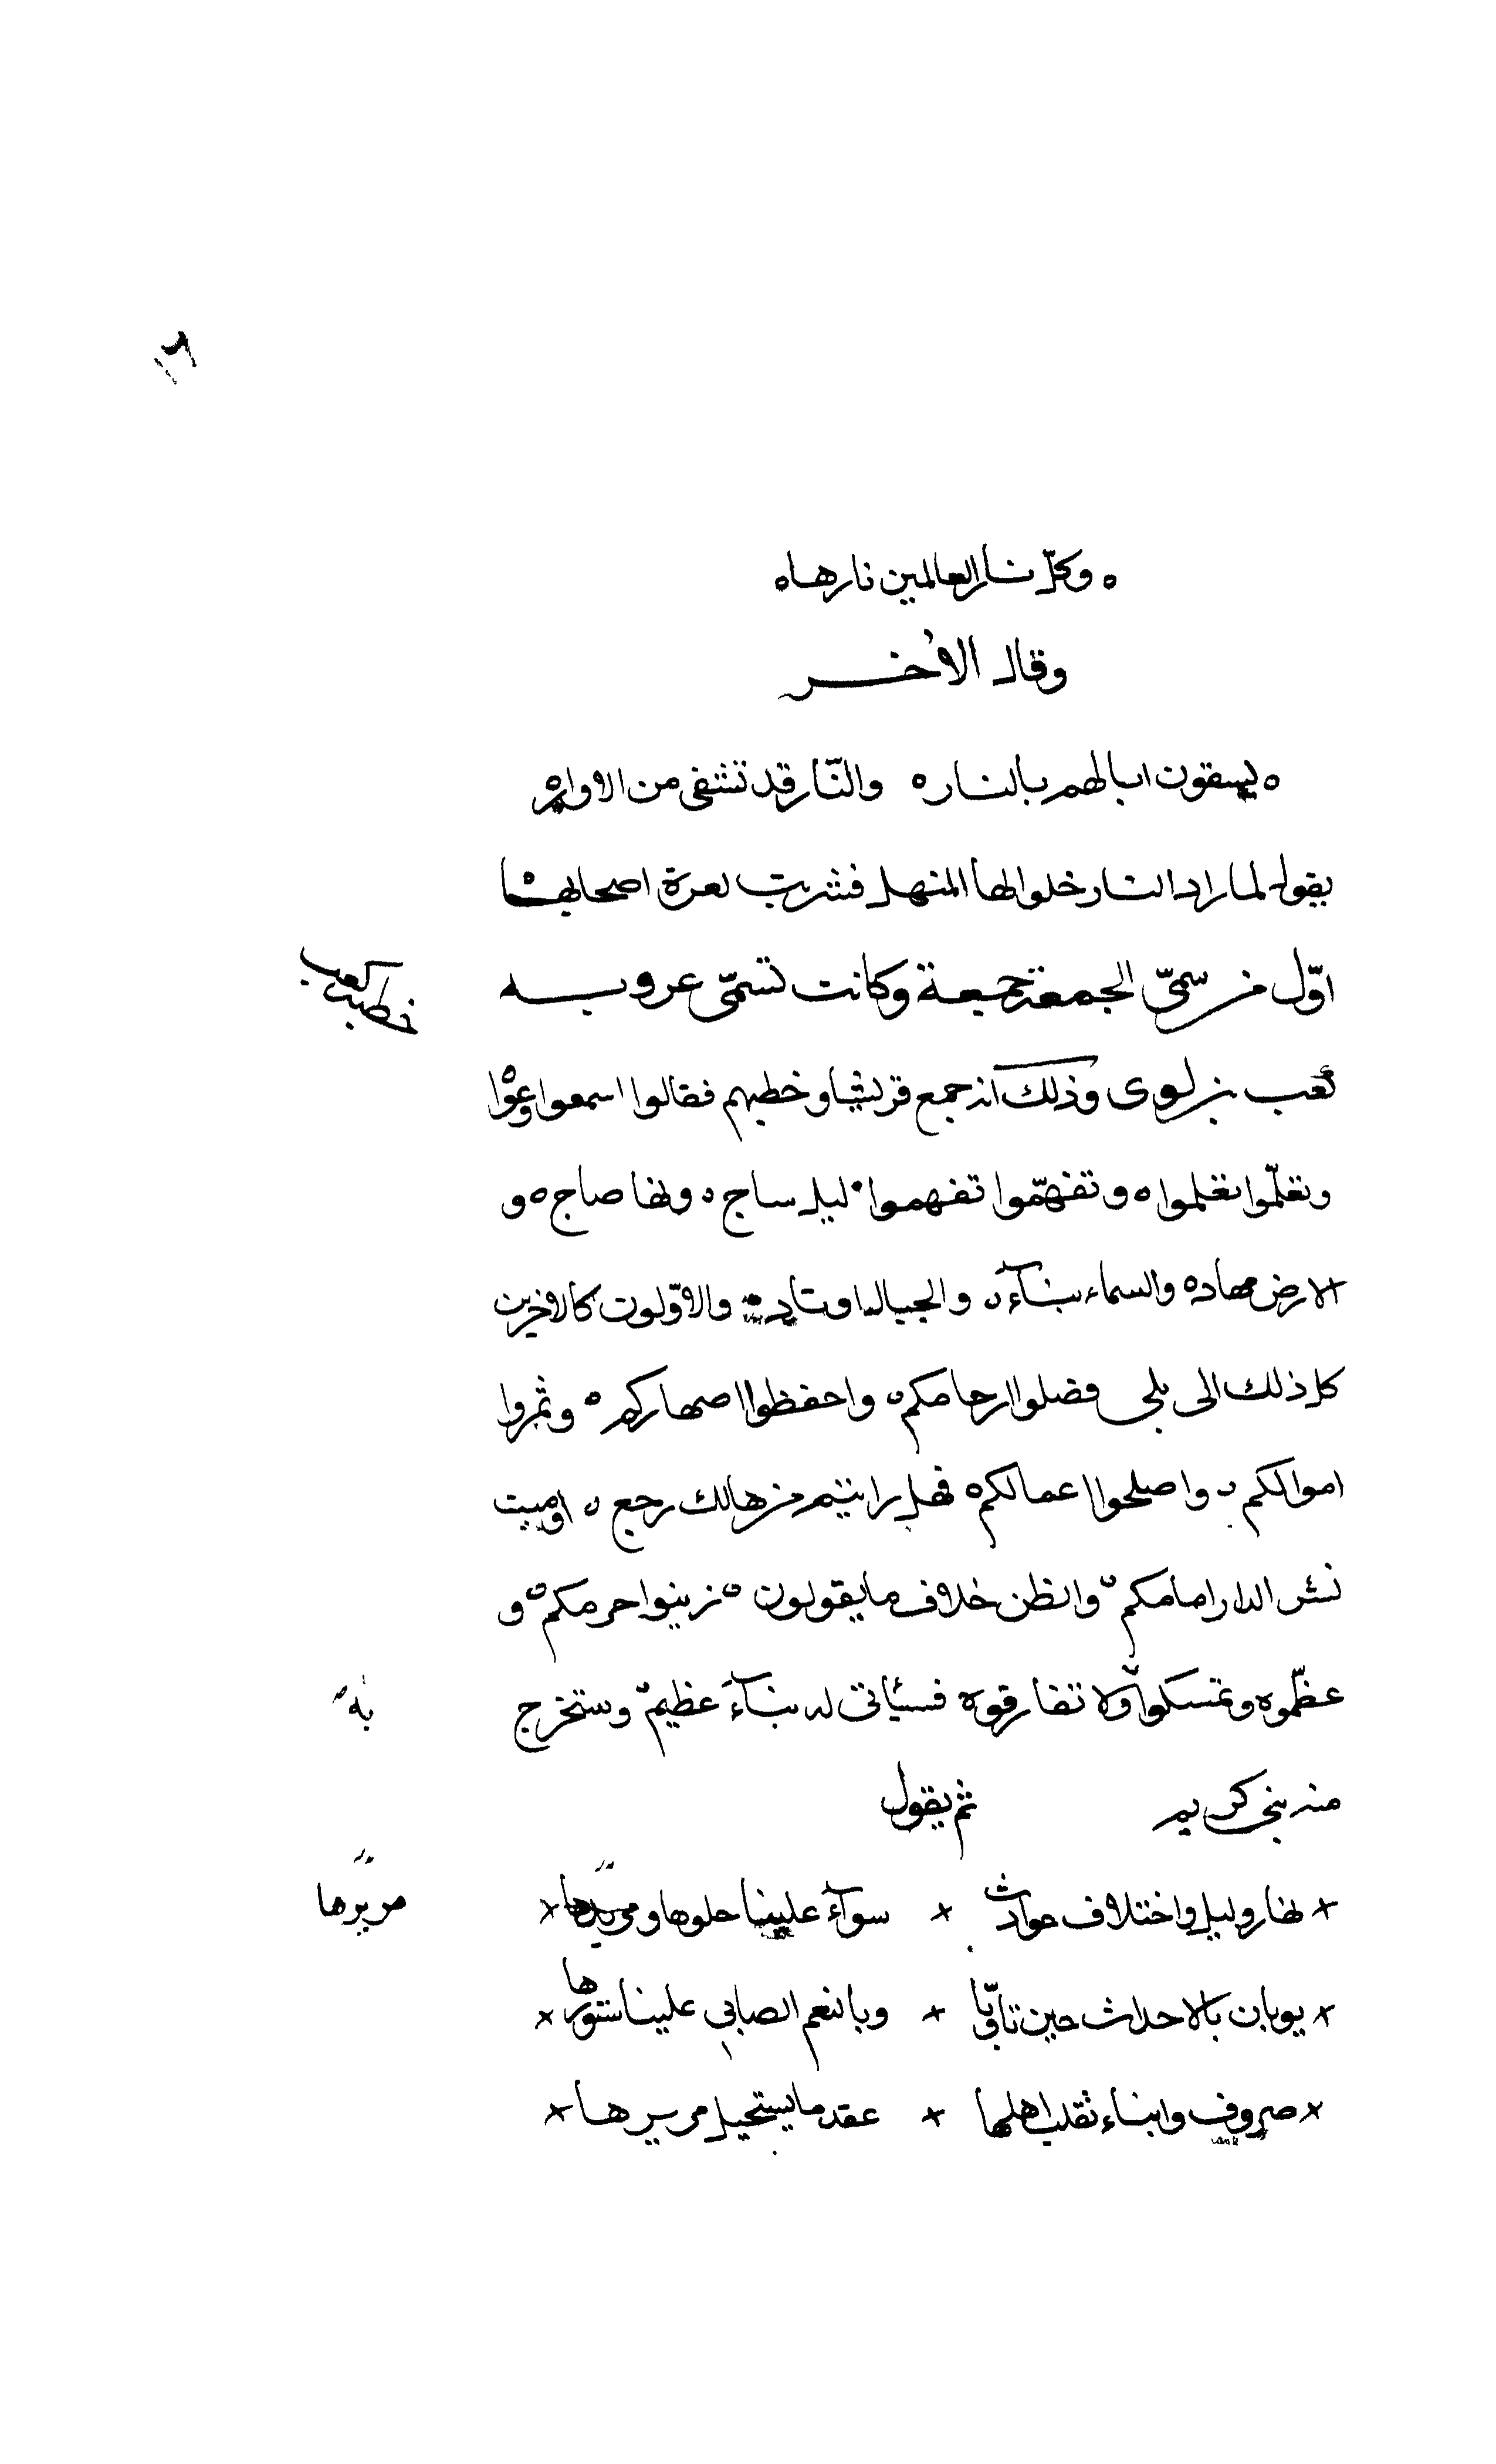 ١٢
ه وكلّ نار العالمين نارها ه
وقال الآخر
ه يسقون ابالهم بالنار ه والنّار قد تشفى من الاوار ه
يقول لما راد النار خلوا لها المنهل فشربت لعزة اصحابها
اوّل من سمىّ الجمعة جمعة وكانت تسمّى عروبه
خطبة كعب
كعب بن لوى وذلك انه جمع قريشا وخطبهم فقالوا اسمعوا وعوا
وتعلّموا تعلموا ه وتفهّموا تفهموا ليل ساج ه ونهار صاج ه و
الارض مهاد ه والسماء بنآء ه والجبال اوتاد ه والاوّلون كالاخرين
كل ذلك الى بلى فصلوا ارحامكم ه واحفظوا اصهاركم ه وثمروا
اموالكم ه واصلحوا اعمالكم ه فهل رايتم من هالك رجع ه او ميت
نشر الدار امامكم ه والظن خلاف ما يقولون ه زينوا حرمكم ه و
عظّموه وتمسكوا ولا تفارقوه فسيأتى له نبآء عظيم ه وستخرج
به
منه نبى كريم ثم يقول
× نهار وليل واختلاف حوادث × سوآء علينا حلوها ومريرها ×
مريرها
× يوبان بالاحداث حين تاوّبا × وبالنعم الضافى علينا ستورها ×
× صروف وابناء تقلب اهلها × عقد ما يستحيل مريرها ×